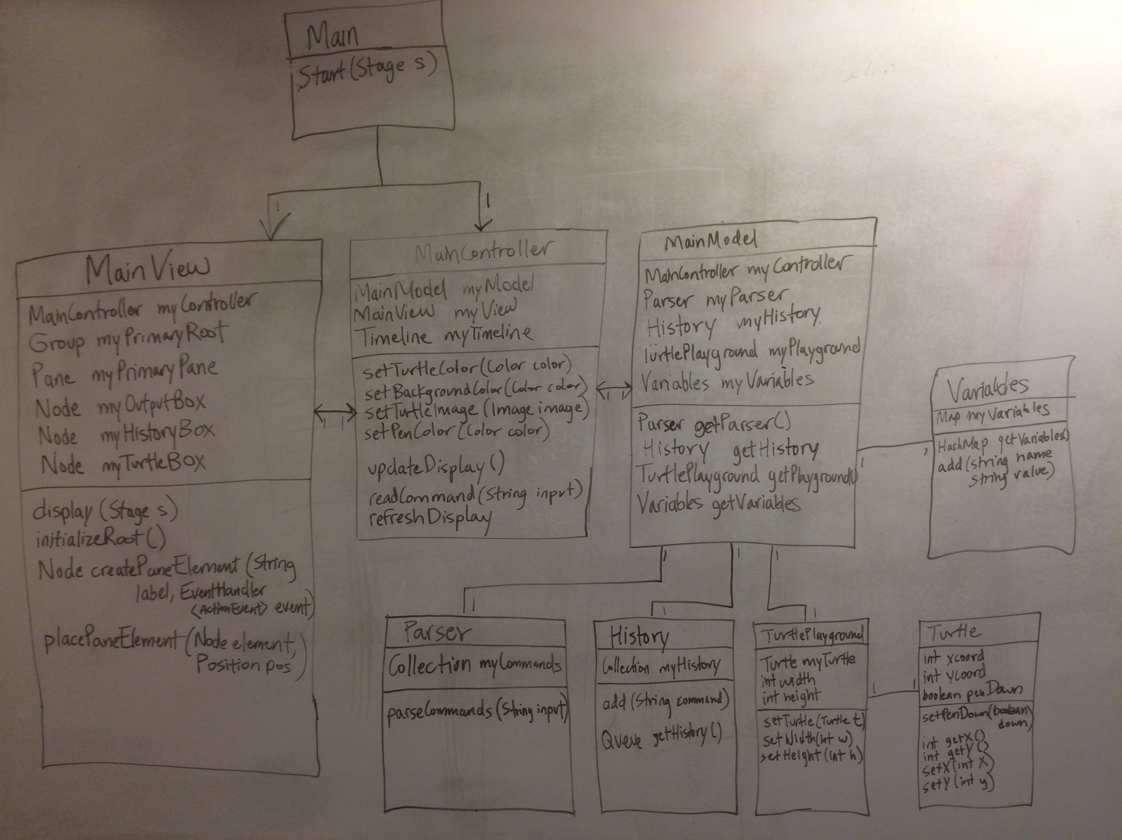 Main
Start(Stage s)
1
1
MainView
MainController myController
Group myPrimaryRoot
Pane myPrimaryPane
Node myOutputBox
Node myHistoryBox
Node myTurtleBox
display(Stage s)
initializeRoot()
Node createPaneElement(String
label, EventHandler
<ActionEvent> event)
placePaneElement(Node element,
Position pos)
1 1
MainController
MainModel myModel
MainView myView
Timeline myTimeline
setTurtleColor(Color color)
setBackgroundColor(Color color)
setTurtleImage(Image image)
setPenColor(Color color)
updateDisplay()
readCommand(String input)
refreshDisplay
1 1
MainModel
MainController myController
Parser myParser
History myHistory
TurtlePlayground myPlayground
Variables myVariables
Parser getParser()
History getHistory
TurtlePlayground getPlayground()
Variables getVariables
1
1
Variables
Map myVariables
HashMap getVariables()
add(string name
string value)
1
1
1
1
1
1
Parser
Collection myCommands
parseCommands(String input)
History
Collection myHistory
add(String command)
Queue getHistory()
TurtlePlayground
Turtle myTurtle
int width
int height
setTurtle(Turtle t)
setWidth(int w)
setHeight(int h)
1
1
Turtle
int xcoord
int ycoord
boolean penDown
setPenDown(boolean
down)
int getX()
int getY()
setX(int x)
setY(int y)